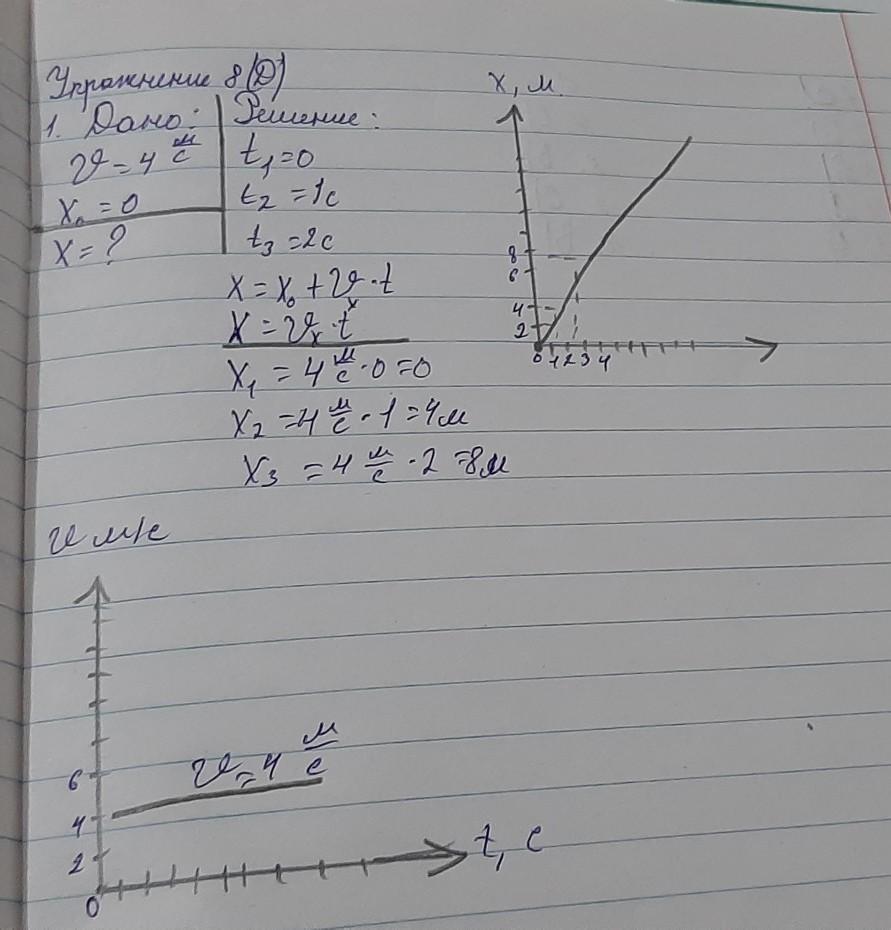 Упражнение 8(Д)
1. Дано:
v = 4 м/с
x₀ = 0
x = ?
Решение:
t₁ = 0
t₂ = 1с
t₃ = 2с
x = x₀ + vₓ · t
x = vₓ · t
x₁ = 4 м/с · 0 = 0
x₂ = 4 м/с · 1 = 4м
x₃ = 4 м/с · 2 = 8м
x, м
8
6
4
2
0 1 2 3 4
v м/с
6
4
2
0
v = 4 м/с
t, с